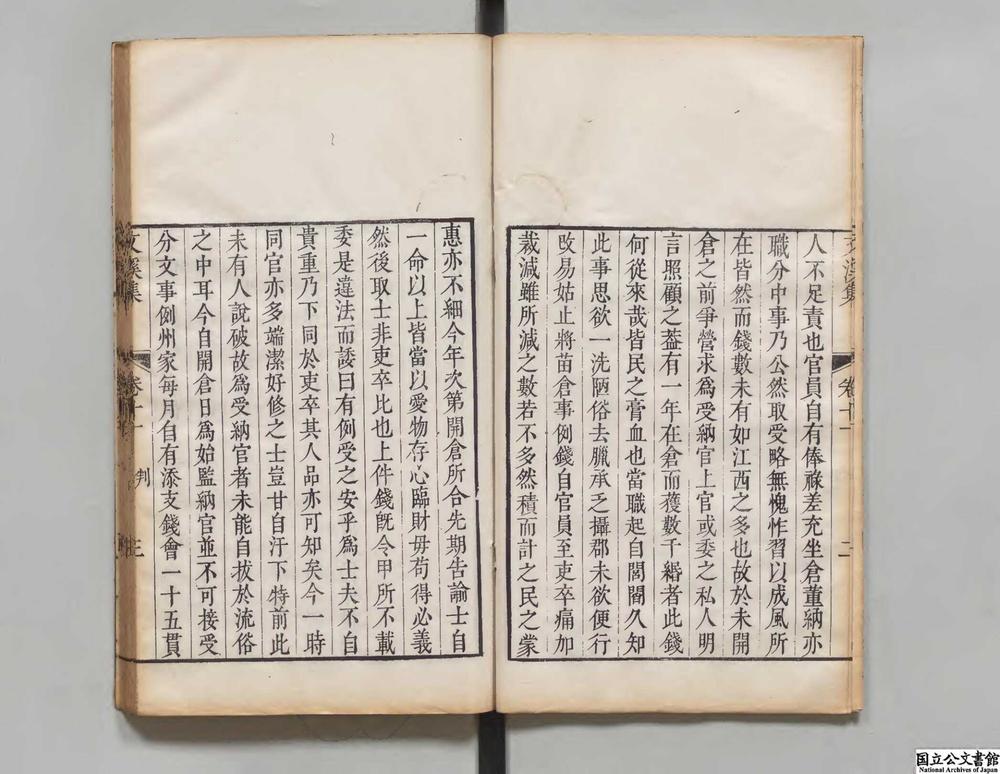 人不足責也官員自有俸祿差充坐倉董納亦
職分中事乃公然取受略無愧怍習以成風所
在皆然而錢數未有如江西之多也故於未開
倉之前爭營求為受納官上官或委之私人明
言照顧之蓋有一年在倉而獲數千緡者此錢
何從來哉皆民之膏血也當職起自閭閻久知
此事思欲一洗陋俗去臘承乏攝郡未欲便行
改易姑止將苗倉事例錢自官員至吏卒痛加
裁減雖所減之數若不多然積而計之民之蒙
惠亦不細今年次第開倉所合先期告諭士自
一命以上皆當以愛物存心臨財毋苟得必義
然後取士非吏卒比也上件錢旣令甲所不載
委是違法而諉曰有例受之安乎為士夫不自
貴重乃下同於吏卒其人品亦可知矣今一時
同官亦多端潔好修之士豈甘自汙下特前此
未有人說破故為受納官者未能自拔於流俗
之中耳今自開倉日為始監納官並不可接受
分文事例州家每月自有添支錢會一十五貫
文溪集 卷十一 判 三
国立公文書館
National Archives of Japan